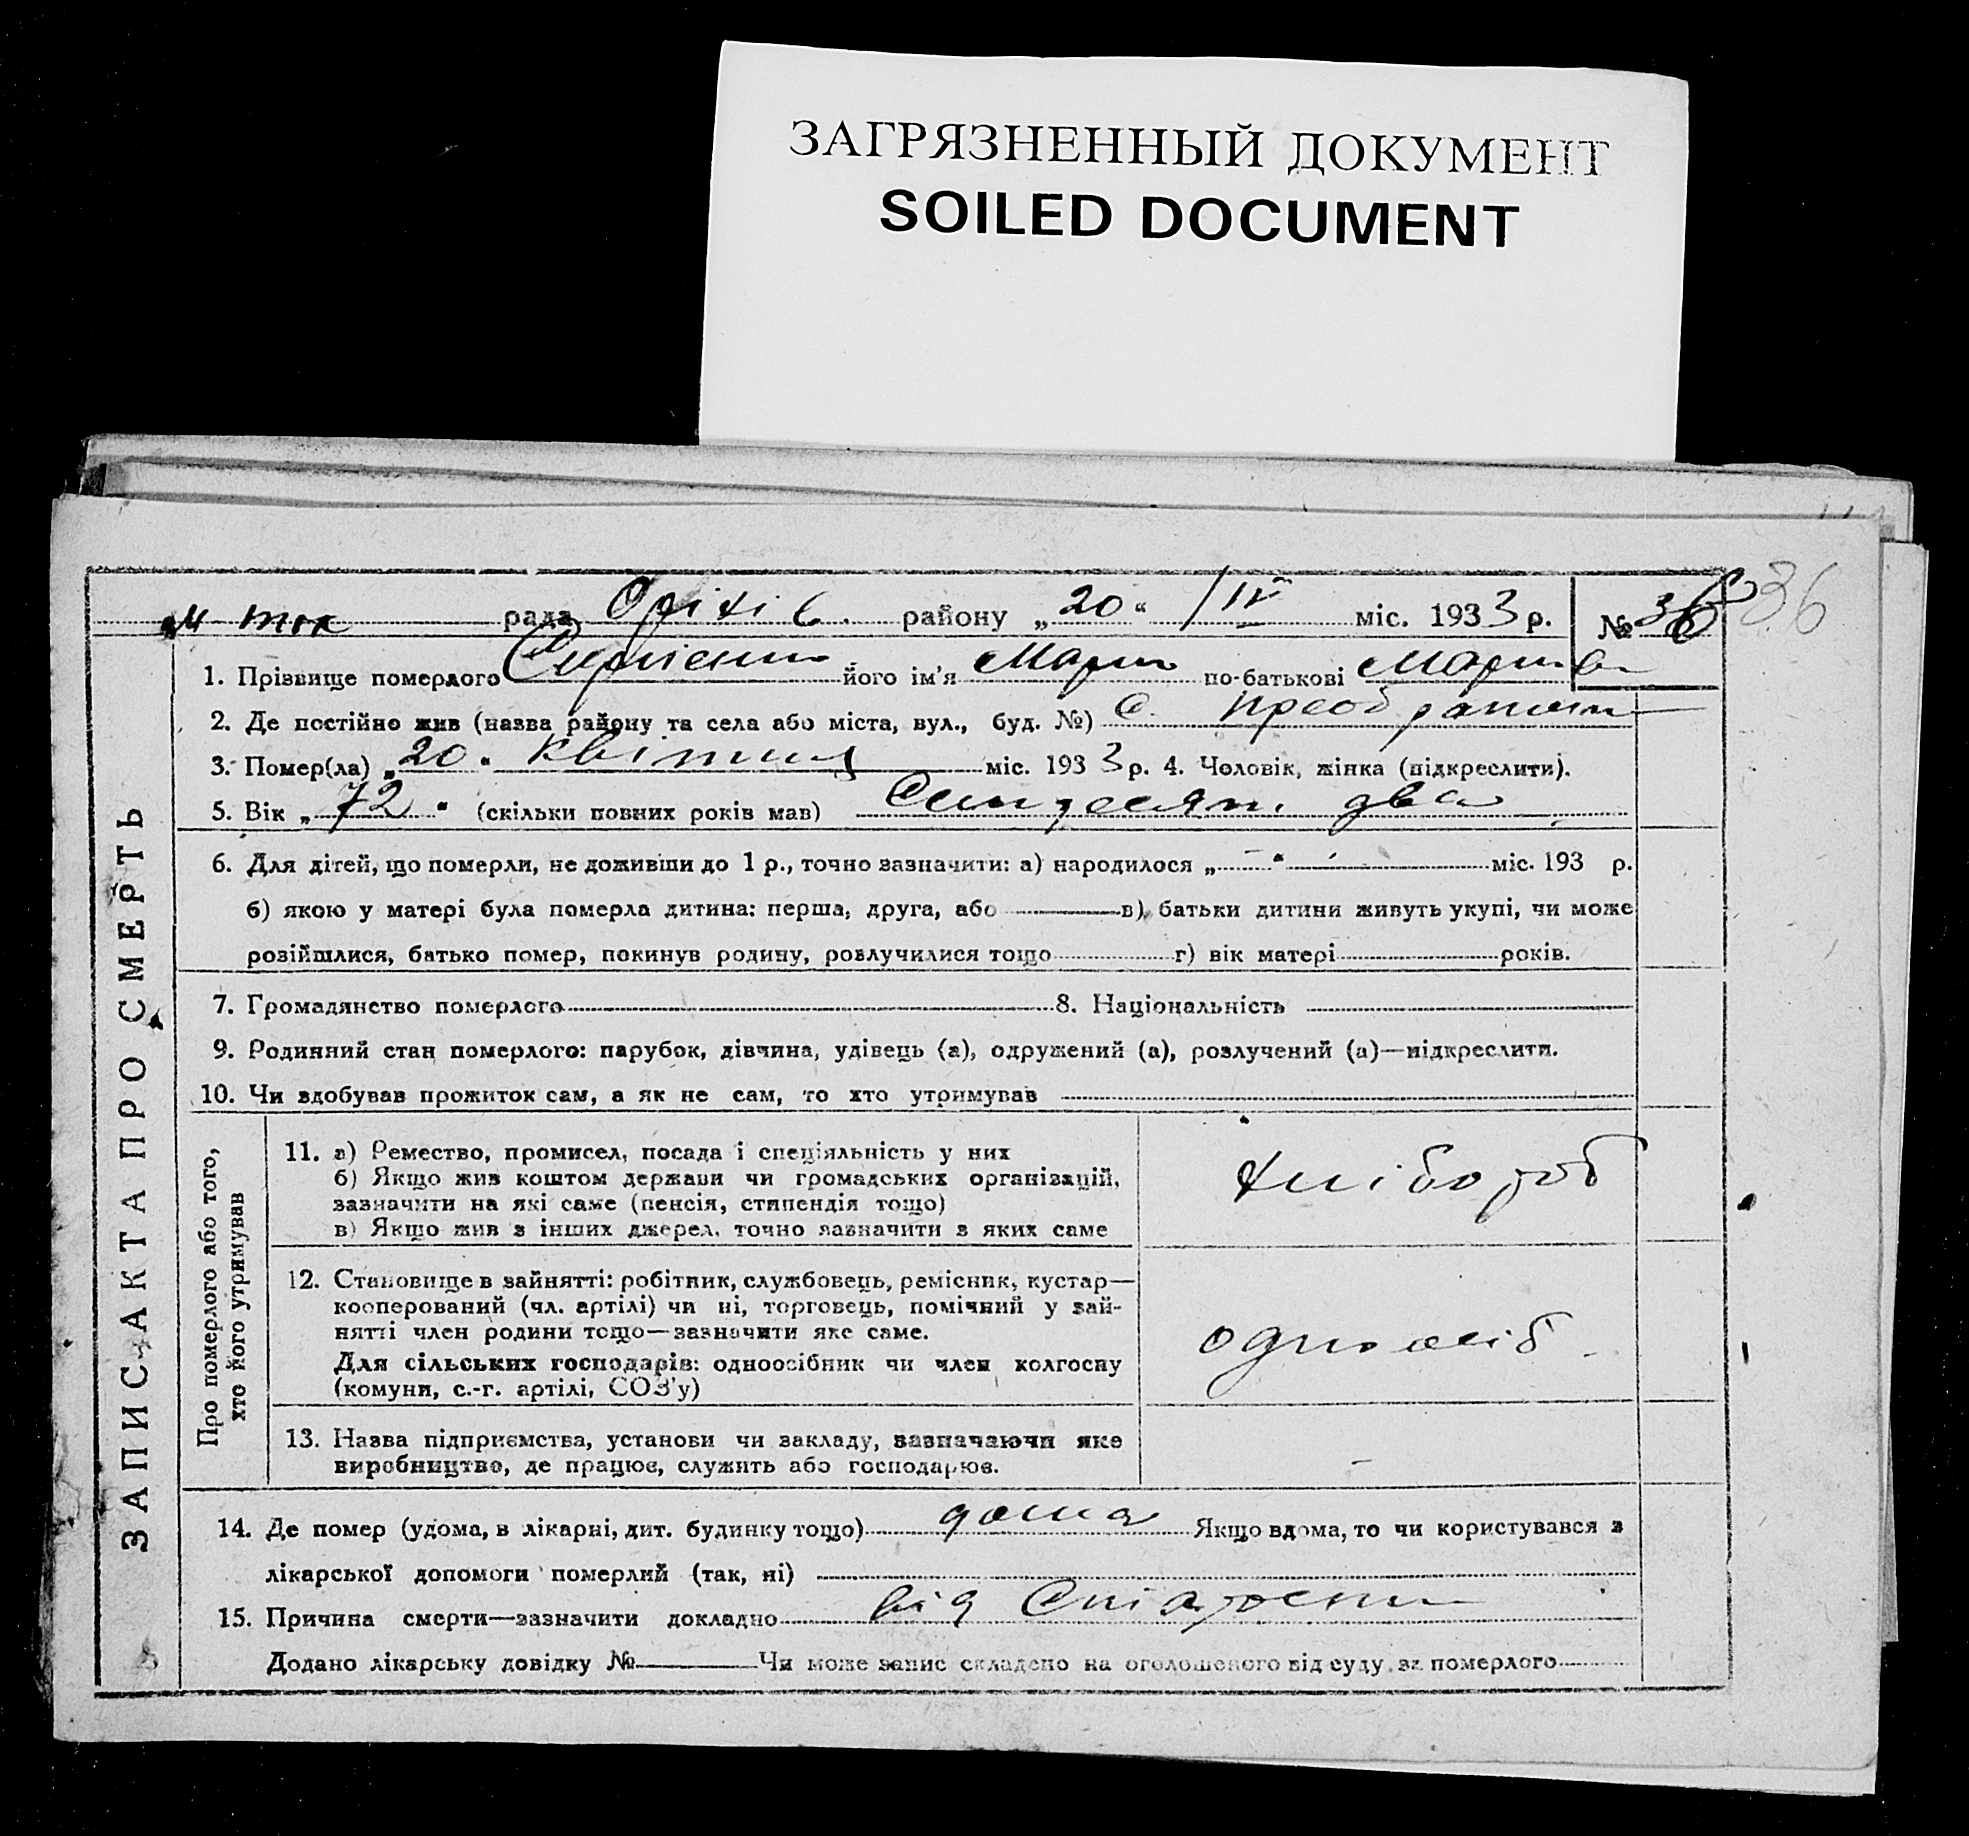 ЗАГРЯЗНЕННЫЙ ДОКУМЕНТ
SOILED DOCUMENT
36
М Ток рада Оріхів. району „20“ /IV міс. 1933 р. № 36
1. Прізвище померлого його ім'я Мария по-батькові
2. Де постійно жив (назва району та села або міста, вул., буд. №) С.
3. Помер(ла) „20“ квітня міс. 1933 р. 4. Чоловік, жінка (підкреслити).
5. Вік „72“ (скільки повних років мав) два
6. Для дітей, що померли, не доживши до 1 р., точно зазначити: а) народилося „ - “ - міс. 193 р.
б) якою у матері була померла дитина: перша, друга, або в) батьки дитини живуть укупі, чи може
розійшлися, батько помер, покинув родину, розлучилися тощо г) вік матері років.
7. Громадянство померлого 8. Національність
9. Родинний стан померлого: парубок, дівчина, удівець (а), одружений (а), розлучений (а)—підкреслити.
10. Чи здобував прожиток сам, а як не сам, то хто утримував
ЗАПИС АКТА ПРО СМЕРТЬ
Про померлого або того,
хто його утримував
11. а) Ремество, промисел, посада і спеціяльність у них
б) Якщо жив коштом держави чи громадських організацій,
зазначити на які саме (пенсія, стипендія тощо)
в) Якщо жив з інших джерел, точно зазначити з яких саме
хлібороб
12. Становище в зайнятті: робітник, службовець, ремісник, кустар—
кооперований (чл. артілі) чи ні, торговець, помічний у зай-
нятті член родини тощо—зазначити яке саме.
Для сільських господарів: одноосібник чи член колгоспу
(комуни, с.-г. артілі, СОЗ'у)
одноосіб.
13. Назва підприємства, установи чи закладу, зазначаючи яке
виробництво, де працює, служить або господарює.
-
14. Де помер (удома, в лікарні, дит. будинку тощо) дома Якщо вдома, то чи користувався з
лікарської допомоги померлий (так, ні)
15. Причина смерти—зазначити докладно від
Додано лікарську довідку № Чи може запис складено на оголошеного від суду за померлого